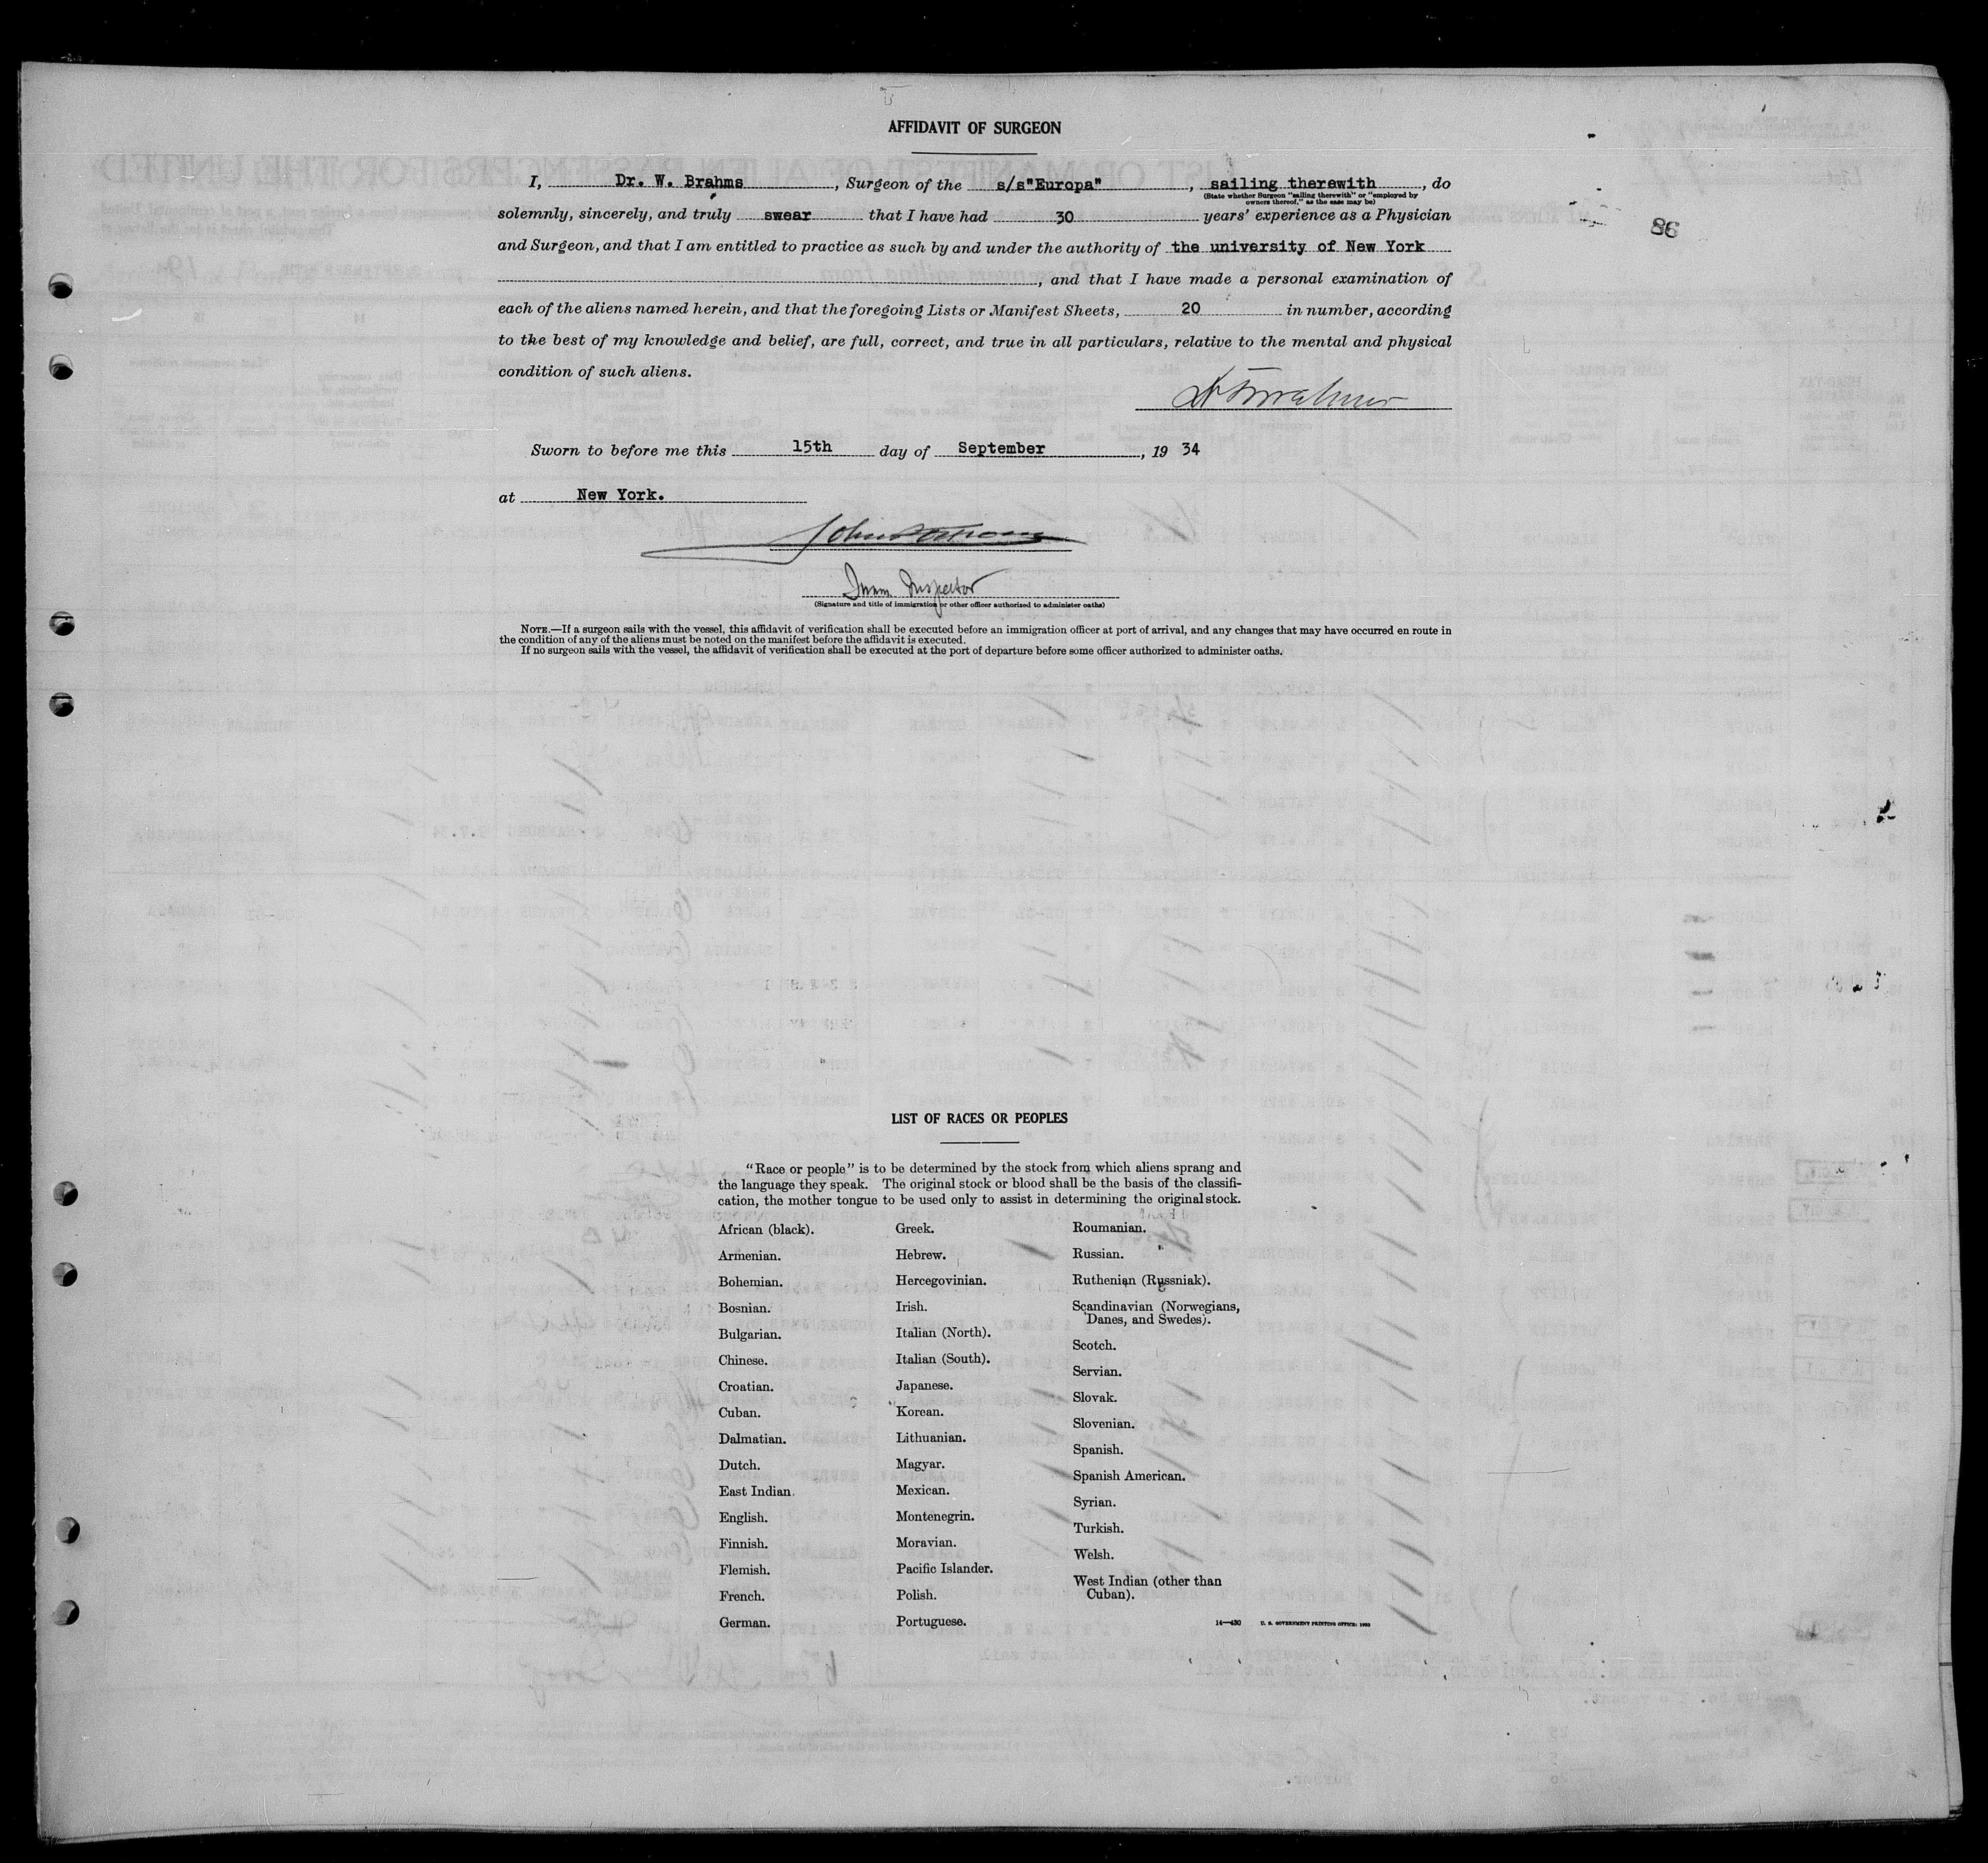 AFFIDAVIT OF SURGEON
I, Dr. W. Brahms, Surgeon of the s/s"Europa", sailing therewith, do
(State whether Surgeon "sailing therewith" or "employed by
owners thereof," as the case may be)
solemnly, sincerely, and truly swear that I have had 30 years' experience as a Physician
86
and Surgeon, and that I am entitled to practice as such by and under the authority of the university of New York
, and that I have made a personal examination of
each of the aliens named herein, and that the foregoing Lists or Manifest Sheets, 20 in number, according
to the best of my knowledge and belief, are full, correct, and true in all particulars, relative to the mental and physical
condition of such aliens.
Sworn to before me this 15th day of September, 19 34
at New York.
Imm. Inspector
(Signature and title of immigration or other officer authorized to administer oaths)
NOTE.—If a surgeon sails with the vessel, this affidavit of verification shall be executed before an immigration officer at port of arrival, and any changes that may have occurred en route in
the condition of any of the aliens must be noted on the manifest before the affidavit is executed.
If no surgeon sails with the vessel, the affidavit of verification shall be executed at the port of departure before some officer authorized to administer oaths.
LIST OF RACES OR PEOPLES
"Race or people" is to be determined by the stock from which aliens sprang and
the language they speak. The original stock or blood shall be the basis of the classifi-
cation, the mother tongue to be used only to assist in determining the original stock.
African (black).
Armenian.
Bohemian.
Bosnian.
Bulgarian.
Chinese.
Croatian.
Cuban.
Dalmatian.
Dutch.
East Indian.
English.
Finnish.
Flemish.
French.
German.
Greek.
Hebrew.
Hercegovinian.
Irish.
Italian (North).
Italian (South).
Japanese.
Korean.
Lithuanian.
Magyar.
Mexican.
Montenegrin.
Moravian.
Pacific Islander.
Polish.
Portuguese.
Roumanian.
Russian.
Ruthenian (Russniak).
Scandinavian (Norwegians,
Danes, and Swedes).
Scotch.
Servian.
Slovak.
Slovenian.
Spanish.
Spanish American.
Syrian.
Turkish.
Welsh.
West Indian (other than
Cuban).
14—430 U. S. GOVERNMENT PRINTING OFFICE: 1933